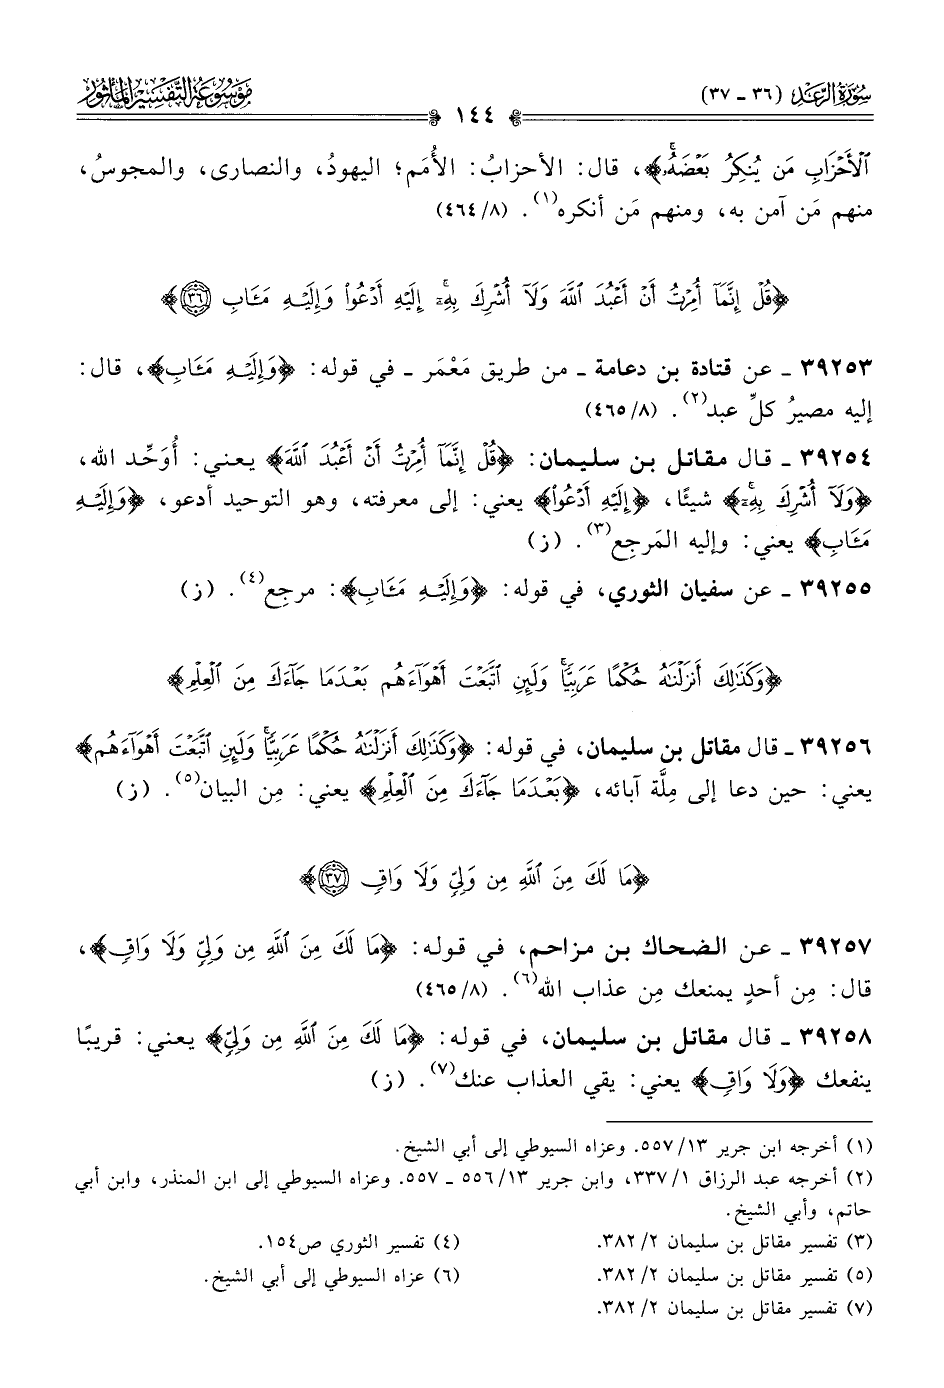 سورة الرعد (٣٦ - ٣٧)
١٤٤
موسوعة التفسير المأثور
ٱلْأَحْزَابِ مَن يُنكِرُ بَعْضَهُۥۚ﴾، قال: الأحزابُ: الأُمَم؛ اليهودُ، والنصارى، والمجوسُ،
منهم مَن آمن به، ومنهم مَن أنكره(١). (٤٦٤/٨)
﴿قُلْ إِنَّمَآ أُمِرْتُ أَنْ أَعْبُدَ ٱللَّهَ وَلَآ أُشْرِكَ بِهِۦٓۚ إِلَيْهِ أَدْعُوا۟ وَإِلَيْهِ مَـَٔابِ ٣٦﴾
٣٩٢٥٣ ـ عن قتادة بن دعامة ـ من طريق مَعْمَر ـ في قوله: ﴿وَإِلَيْهِ مَـَٔابِ﴾، قال:
إليه مصيرُ كلِّ عبد(٢). (٤٦٥/٨)
٣٩٢٥٤ ـ قال مقاتل بن سليمان: ﴿قُلْ إِنَّمَآ أُمِرْتُ أَنْ أَعْبُدَ ٱللَّهَ﴾ يعني: أُوَحِّد الله،
﴿وَلَآ أُشْرِكَ بِهِۦٓۚ﴾ شيئًا، ﴿إِلَيْهِ أَدْعُوا۟﴾ يعني: إلى معرفته، وهو التوحيد أدعو، ﴿وَإِلَيْهِ
مَـَٔابِ﴾ يعني: وإليه المَرجِع(٣). (ز)
٣٩٢٥٥ ـ عن سفيان الثوري، في قوله: ﴿وَإِلَيْهِ مَـَٔابِ﴾: مرجِع(٤). (ز)
﴿وَكَذَٰلِكَ أَنزَلْنَٰهُ حُكْمًا عَرَبِيًّاۚ وَلَئِنِ ٱتَّبَعْتَ أَهْوَآءَهُم بَعْدَمَا جَآءَكَ مِنَ ٱلْعِلْمِ﴾
٣٩٢٥٦ ـ قال مقاتل بن سليمان، في قوله: ﴿وَكَذَٰلِكَ أَنزَلْنَٰهُ حُكْمًا عَرَبِيًّاۚ وَلَئِنِ ٱتَّبَعْتَ أَهْوَآءَهُم﴾
يعني: حين دعا إلى مِلَّة آبائه، ﴿بَعْدَمَا جَآءَكَ مِنَ ٱلْعِلْمِ﴾ يعني: مِن البيان(٥). (ز)
﴿مَا لَكَ مِنَ ٱللَّهِ مِن وَلِىٍّ وَلَا وَاقٍ ٣٧﴾
٣٩٢٥٧ ـ عن الضحاك بن مزاحم، في قوله: ﴿مَا لَكَ مِنَ ٱللَّهِ مِن وَلِىٍّ وَلَا وَاقٍ﴾،
قال: مِن أحدٍ يمنعك مِن عذاب الله(٦). (٤٦٥/٨)
٣٩٢٥٨ ـ قال مقاتل بن سليمان، في قوله: ﴿مَا لَكَ مِنَ ٱللَّهِ مِن وَلِىٍّ﴾ يعني: قريبًا
ينفعك ﴿وَلَا وَاقٍ﴾ يعني: يقي العذاب عنك(٧). (ز)
(١) أخرجه ابن جرير ١٣/ ٥٥٧. وعزاه السيوطي إلى أبي الشيخ.
(٢) أخرجه عبد الرزاق ١/ ٣٣٧، وابن جرير ١٣/ ٥٥٦ ـ ٥٥٧. وعزاه السيوطي إلى ابن المنذر، وابن أبي
حاتم، وأبي الشيخ.
(٣) تفسير مقاتل بن سليمان ٢/ ٣٨٢.
(٤) تفسير الثوري ص١٥٤.
(٥) تفسير مقاتل بن سليمان ٢/ ٣٨٢.
(٦) عزاه السيوطي إلى أبي الشيخ.
(٧) تفسير مقاتل بن سليمان ٢/ ٣٨٢.